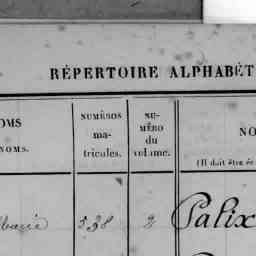 RÉPERTOIRE ALPHABÉT
OMS
NOMS.
NUMÉROS
ma-
tricules.
NU-
MÉRO
du
volume.
NO
(Il doit être é
538
2
Palix